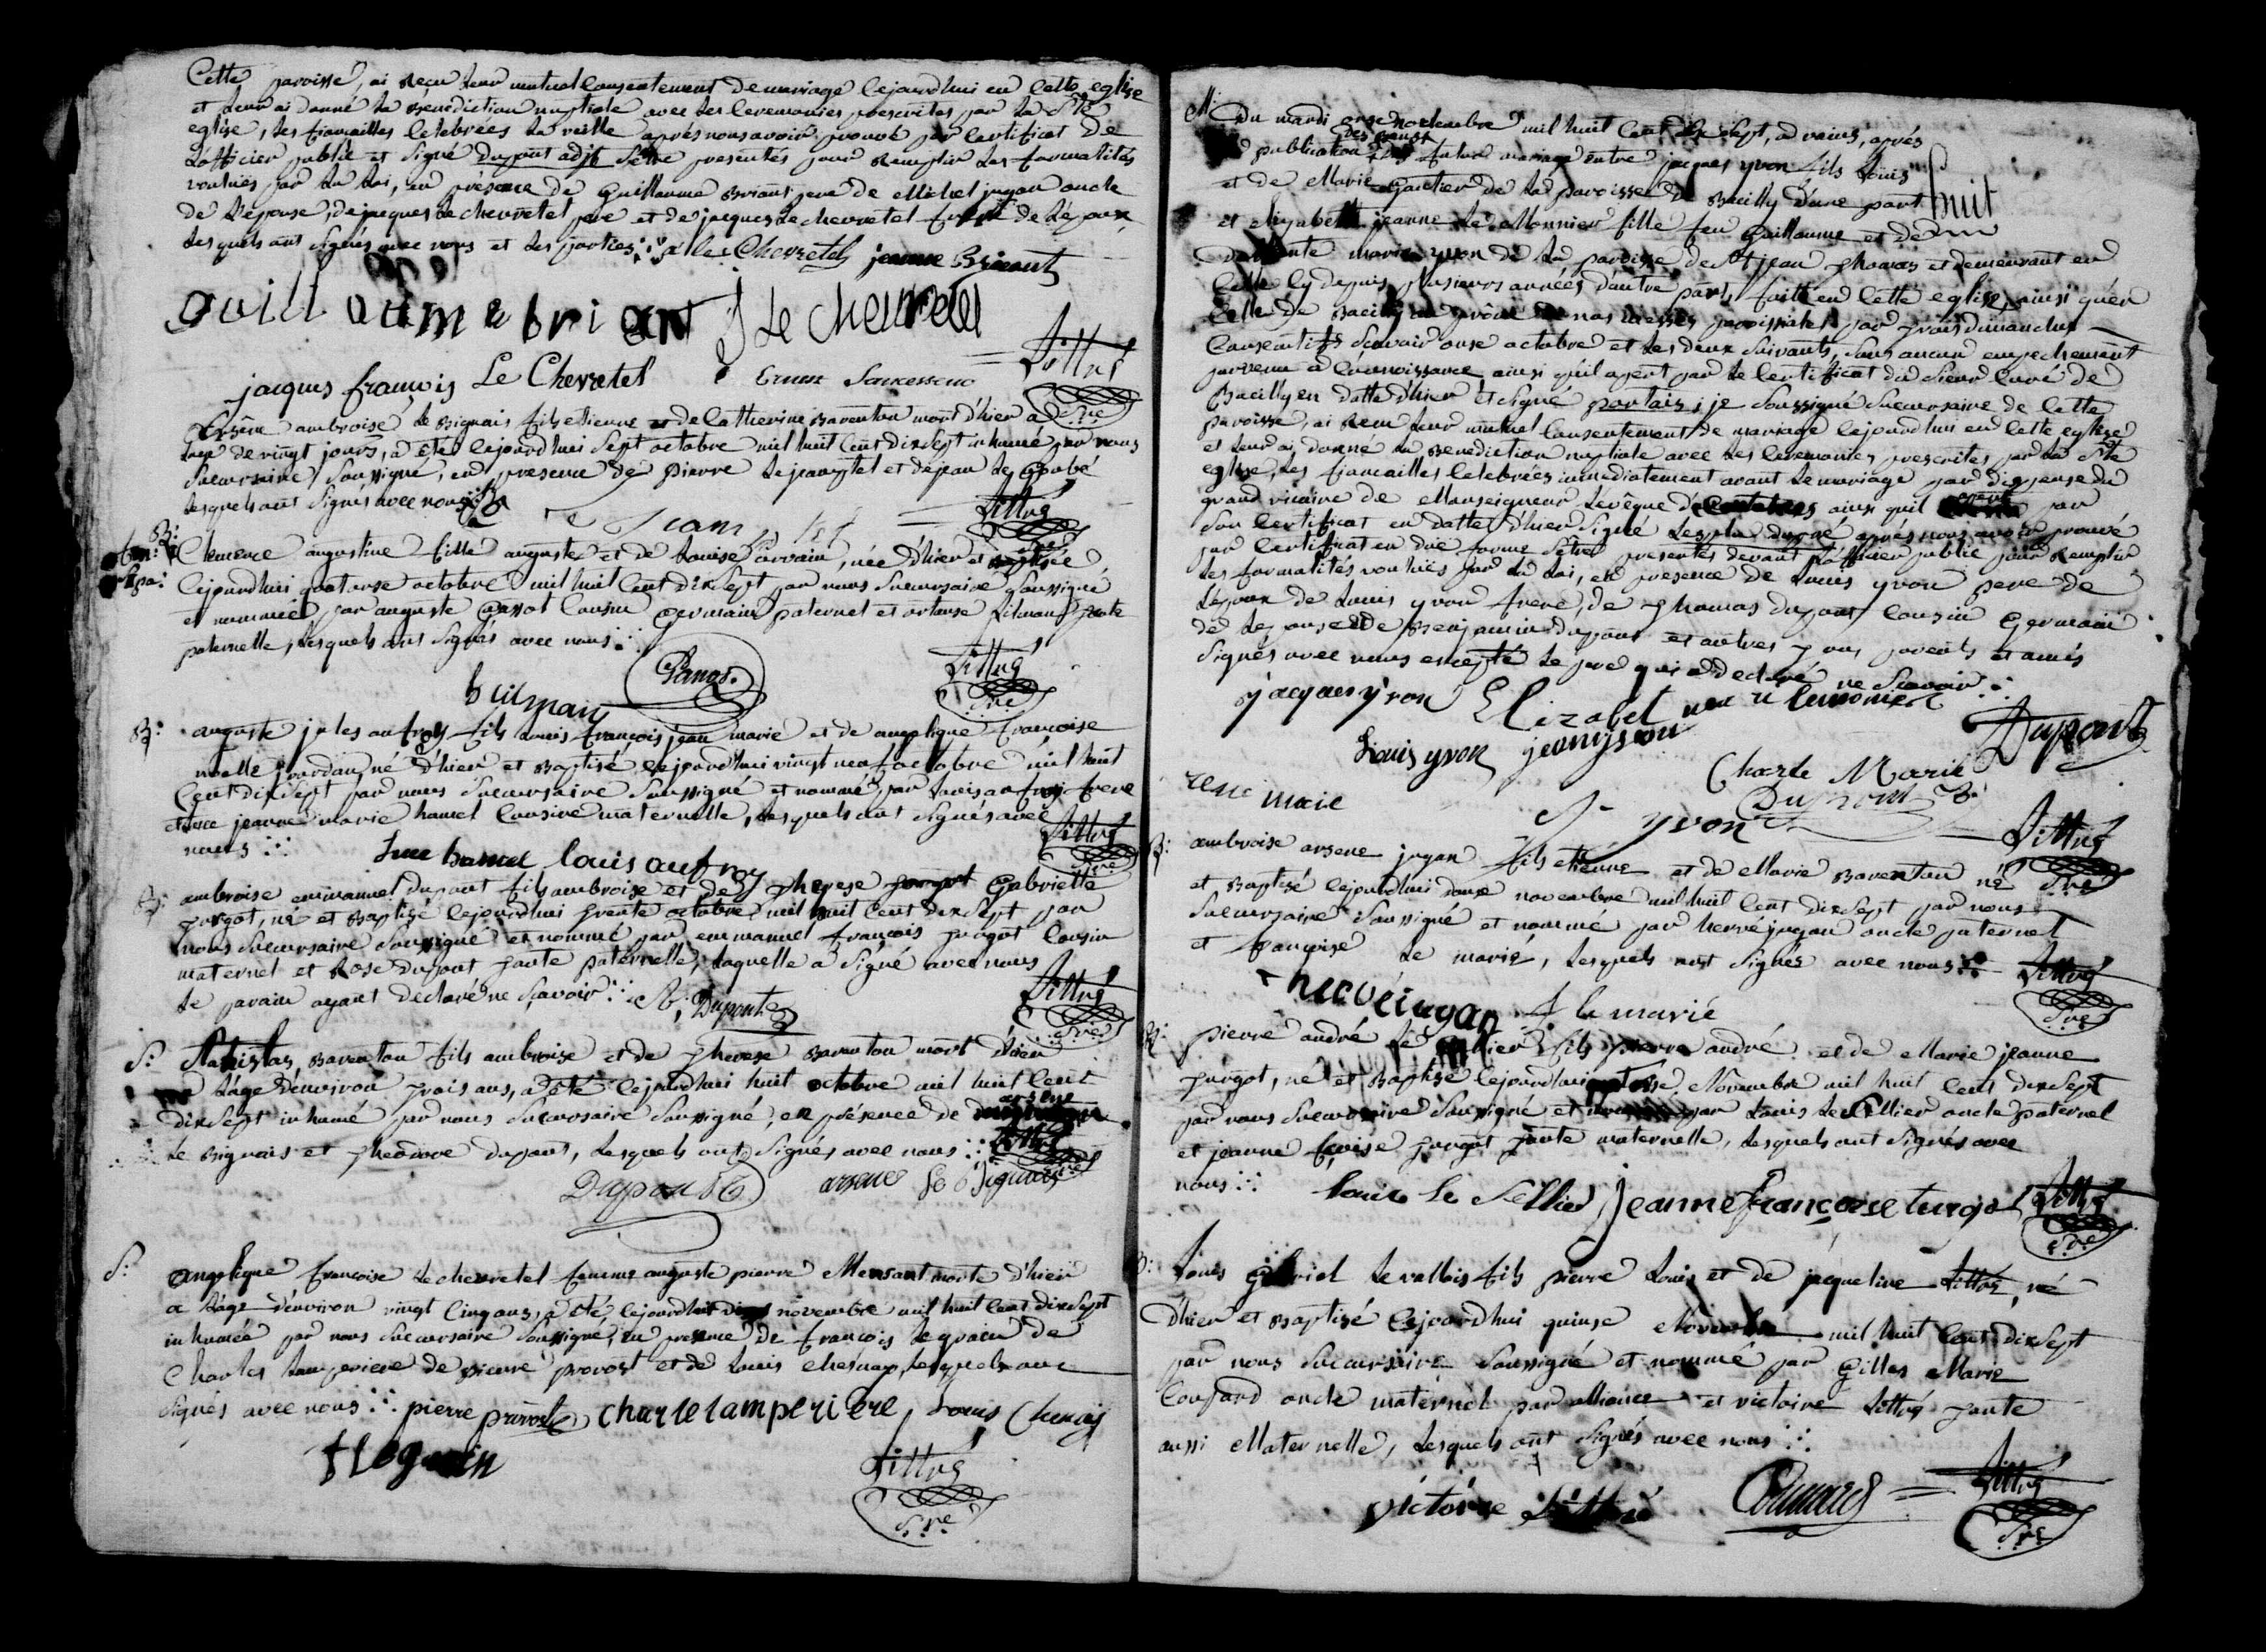 Cette paroisse, ai Reçu leur mutuel Consentement de mariage Cejourd'hui en Cette eglise
et leur ai donné la Benediction nuptiale avec les Ceremonies prescrites par la Ste
eglise, les fiançailles Celebrées la veille après nous avoir prouvé par Certificat de
L'officier public et Signé dupont adjt S'être presentés pour Remplir les formalités
voulües par la Loi, en présence de Guillaume Briant pere de Michel jugan oncle
de L'épouse, de jacques Le chevretel pere et de jacques Le chevretel frere de L'époux
Lesquels ont Signés avec nous et les parties Le Chevretel jeanne Briant
guillaume briant J Le chevretel
jacques françois Le Chevretel Littré
Sre
arsène ambroise Le Bignais fils etienne et de Catherine Baventon mort d'hier a
Lage de vingt jours, a été Cejourd'hui Sept octobre mil huit Cent dix Sept inhumé par nous
Succursaire Soussigné, en presence de Pierre Le jamptel et de jean Le Goubé
Lesquels ont Signés avec nous Littré
B:
Clemence augustine fille auguste et de Louise Corvain, née d'hier et Baptisée
Cejourdhui quatorse octobre mil huit Cent dix Sept par nous Succursaire Soussigné
et nommée par auguste Cousin Germain paternel et ortanse tante
paternelle, Lesquels ont Signés avec nous
Littré
Sre
B: auguste jules aufroy fils Louis françois jean marie et de angelique françoise
noelle jourdan, né d'hier et Baptisé Cejourdhui vingt neuf octobre mil huit
Cent dix Sept par nous Succursaire Soussigné et nommé par Louis aufroy frere
et Luce jeanne marie hamel Cousine maternelle, Lesquels ont Signés avec
nous Luce hamel louis aufroy Littré
B: ambroise emmanuel dupont fils ambroise et de Therese Gabrielle
turgot, né et Baptisé Cejourdhui trente octobre mil huit Cent dix Sept par
nous Succursaire Soussigné et nommé par emmanuel françois turgot Cousin
maternel et Rose dupont tante paternelle, Laquelle a Signé avec nous
Le parain ayant declaré ne Sçavoir R. Dupont Littré
Sre
S: Stanislas Baventon fils ambroise et de Therese Baventon mort d'hier
a Lage d'environ trois ans, a été Cejourdhui huit octobre mil huit Cent
dix Sept inhumé par nous Succursaire Soussigné, en présence de arsene
Le Bignais et Theodore dupont, Lesquels ont Signés avec nous Littré
Dupont arsene Le Bignais
S: angelique françoise Le chevretel femme auguste pierre morte d'hier
a Lage d'environ vingt Cinq ans, a été Cejourdhui novembre mil huit Cent dix Sept
inhumée par nous Succursaire Soussigné, en presence de françois Le grain de
Charles Lamperiere de Pierre provost et de Louis Chesnay, Lesquels ont
Signés avec nous pierre prôvost charle lamperiere, Louis Chenay
f Legrain Littré
Sre
M: Du mardi onse novembre mil huit Cent dix Sept, advenu, après
La publication des Bans du futur mariage entre jacques yvon fils Loüis
et de Marie Gautier de La paroisse de Bacilly d'une part huit
et elizabeth jeanne Le Monnier fille feu Guillaume et de
marie yvon de La paroisse de St jean Thomas et demeurant en
Celle Cy depuis plusieurs années d'autre part, faitte en Cette eglise, ainsi qu'en
Celle de Bacilly au prône de nos messes paroissiales par trois dimanches
Consecutifs Scavoir onse octobre et les deux Suivants, Sans aucun empechement
parvenu a Connoissance ainsi qu'il apert par Le Certificat du Sieur Curé de
Bacilly en datte d'hier et Signé portais; je Soussigné Succursaire de Cette
paroisse, ai Reçu leur mutuel Consentement de mariage Cejourdhui en Cette eglise
et leur ai donné la Benediction nuptiale avec les Ceremonies prescrites par la Ste
eglise, les fiançailles Celebrées immediatement avant Le mariage par dispense du
grand vicaire de Monseigneur L'evêque de Coutances ainsi qu'il par
Son Certificat en datte d'hier Signé après nous avoir prouvé
par Certificat en duë forme S'être presentés devant L'officier public pour Remplir
Les formalités voulües par La Loi, en presence de Louis yvon pere de
L'epoux de Louis yvon frere, de Thomas dupont Cousin Germain
de Lepouse et de Benjamin dupont et autres tous parents et amis
Signés avec nous excepté Le pere qui a declaré ne Scavoir
jacques yvon Elizabet lemonier
Louis yvon jean yvon Dupont
Charle Marie
Dupont
yvon Littré
Sre
B: ambroise arsene jugan fils etienne et de Marie Baventon né
et Baptisé Cejourdhui douse novembre mil huit Cent dix Sept par nous
Succursaire Soussigné et nommé par hervé jugan oncle paternel
et françoise Le marié, Lesquels ont Signés avec nous Littré
hervé jugan f le marié Sre
B: pierre andré Le Sellier fils pierre andré et de Marie jeanne
turgot, né et Baptisé Cejourdhui Novembre mil huit Cent dix Sept
par nous Succursaire Soussigné et nommé par Louis Le Sellier oncle paternel
et jeanne fçoise turgot tante maternelle, Lesquels ont Signés avec
nous Louis le Sellier jeanne françoise turgot Littré
Sre
B: Louis Gabriel Levallois fils pierre Louis et de jaqueline Littré, né
d'hier et Baptisé Cejourdhui quinse Novembre mil huit Cent dix Sept
par nous Succursaire Soussigné et nommé par Gilles Marie
Coupard oncle maternel par alliance et victoire Littré tante
aussi Maternelle, Lesquels ont Signés avec nous
victoire Littré Littré
Sre